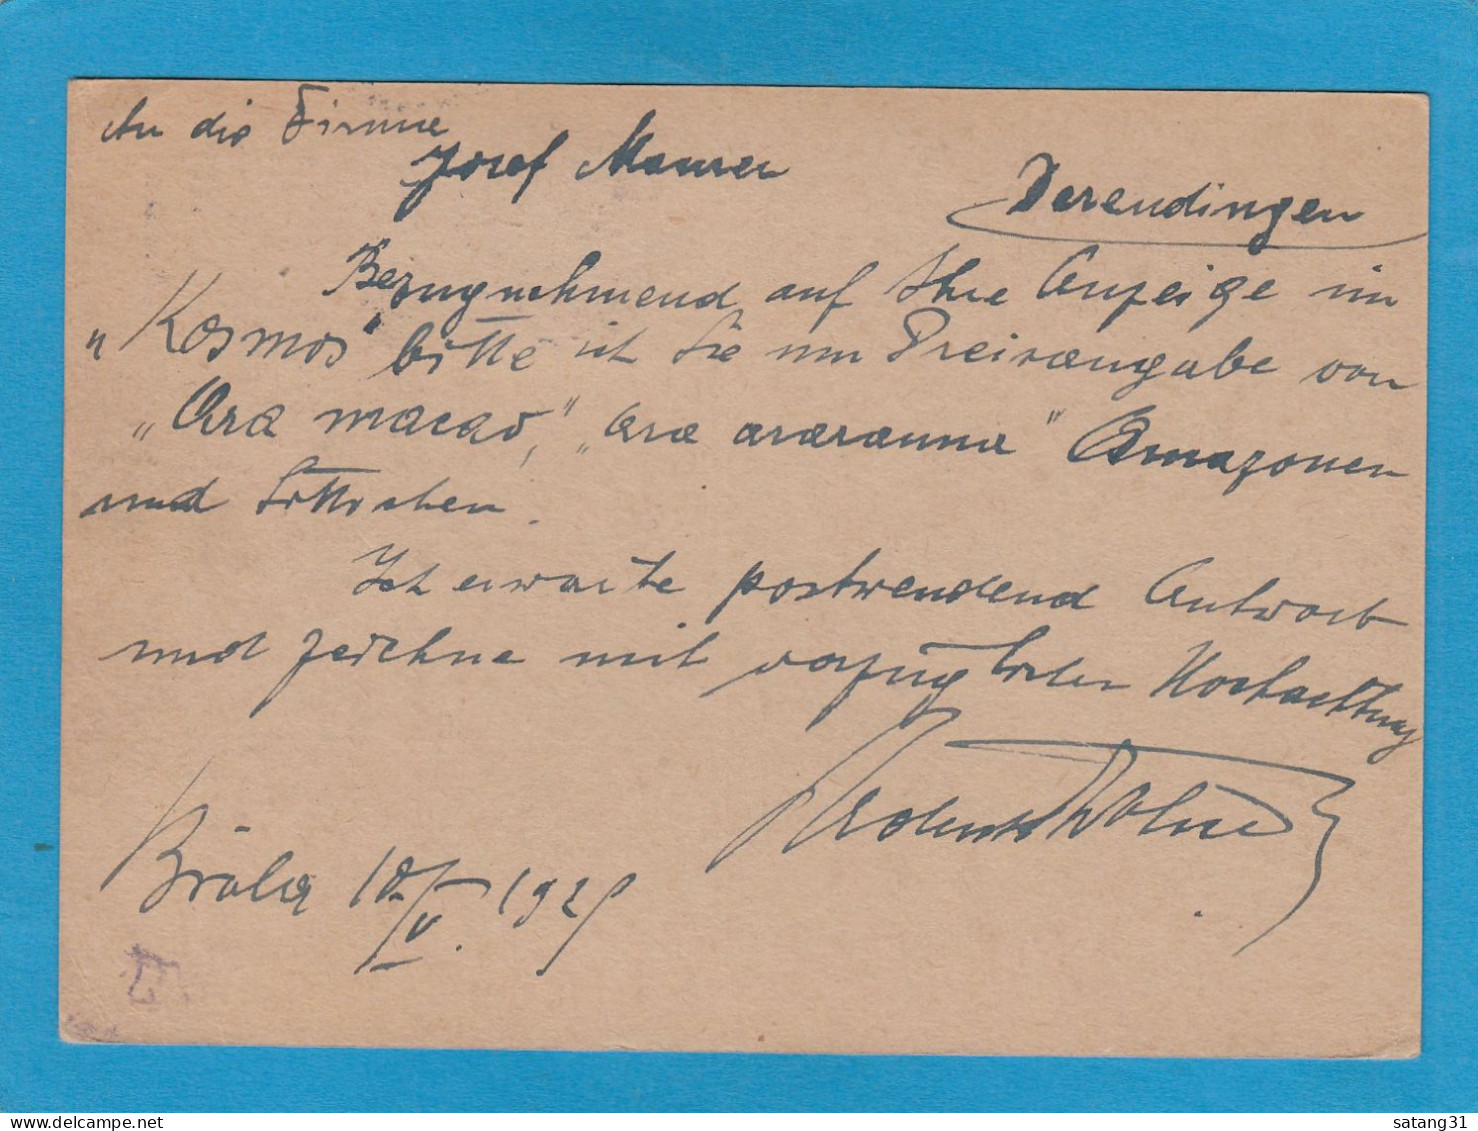 An die Firma
Josef Maurer
Derendingen
Bezugnehmend auf Ihre Anzeige im
„Kosmos" bitte ich Sie um Preisangabe von
„Ara macao," „Ara ararauna" Amazonen
und Sittichen.
Ich erwarte postwendend Antwort
und zeichne mit vorzüglicher Hochachtung
10/V. 1929
delcampe.net
satang31